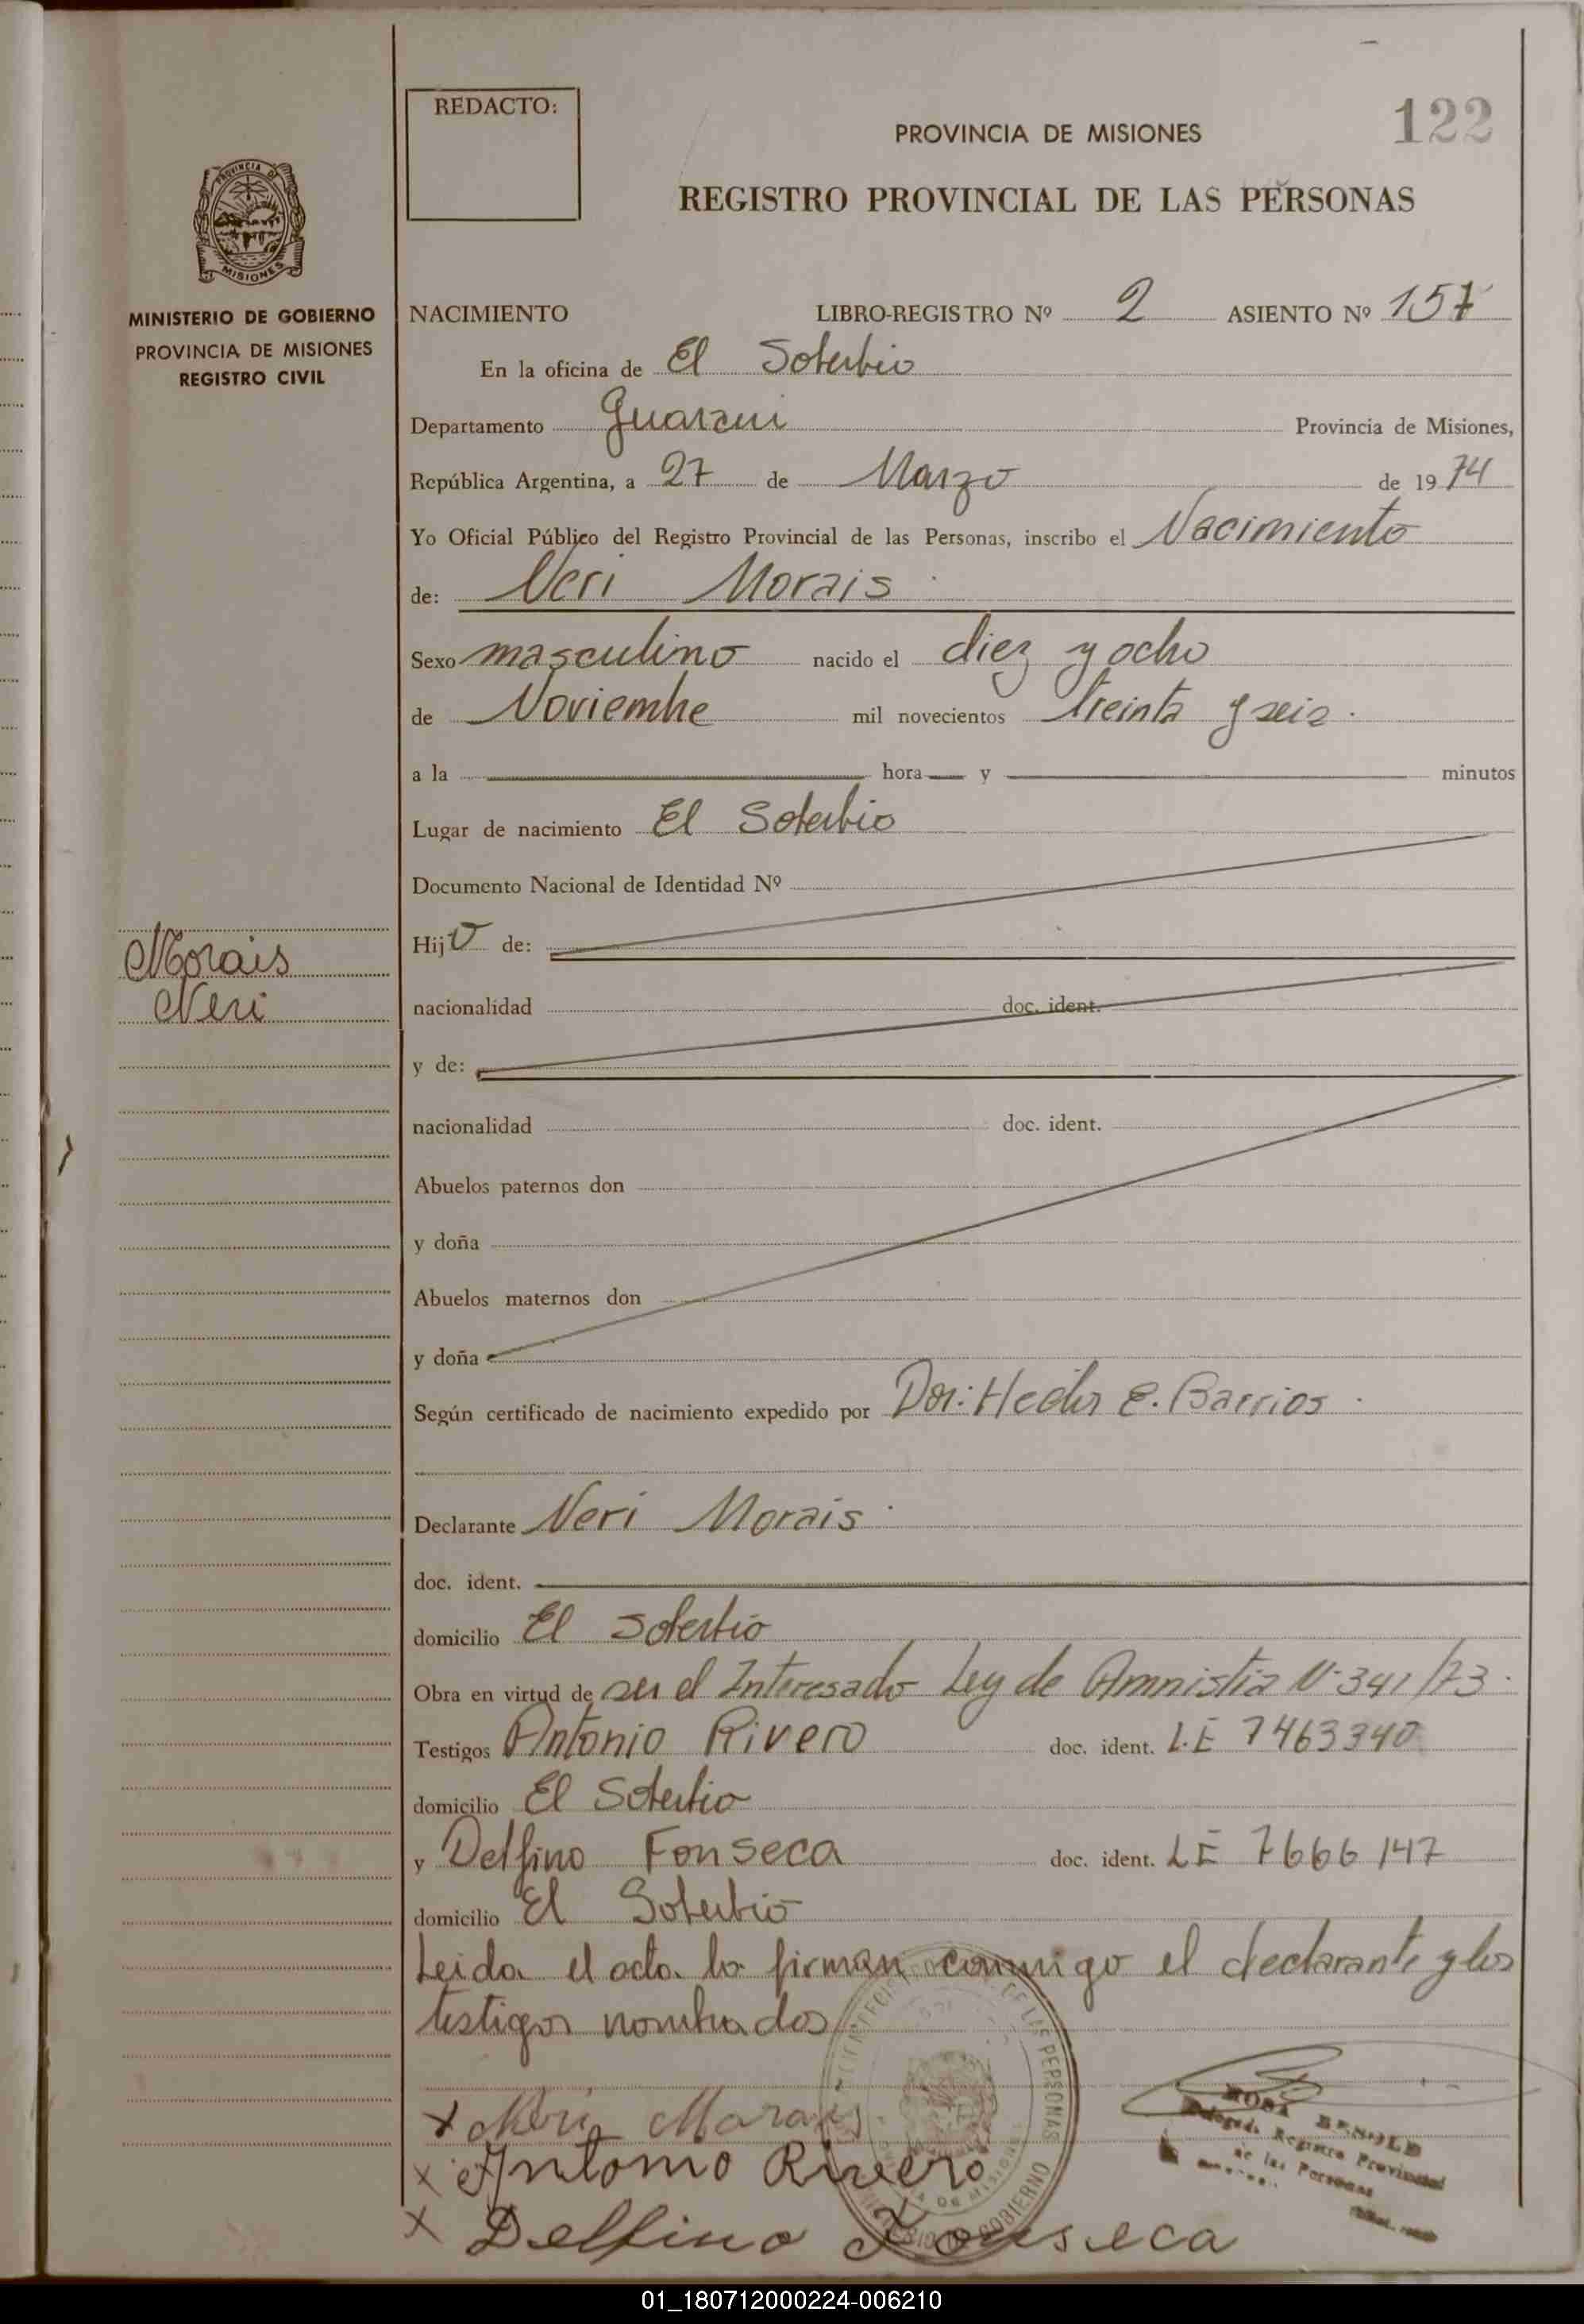 REDACTO:
122
PROVINCIA DE MISIONES
REGISTRO PROVINCIAL DE LAS PERSONAS
PROVINCIA DE
MISIONES
MINISTERIO DE GOBIERNO
PROVINCIA DE MISIONES
REGISTRO CIVIL
NACIMIENTO LIBRO-REGISTRO Nº 2 ASIENTO Nº 157
En la oficina de El Soberbio
Departamento Guarani Provincia de Misiones,
República Argentina, a 27 de Marzo de 1974
Yo Oficial Público del Registro Provincial de las Personas, inscribo el Nacimiento
de: Neri Morais
Sexo masculino nacido el diez y ocho
de Noviembre mil novecientos treinta y seis.
a la hora y minutos
Lugar de nacimiento El Soberbio
Documento Nacional de Identidad Nº
Hijo de:
Morais
Neri
nacionalidad doc. ident.
y de:
nacionalidad doc. ident.
Abuelos paternos don
y doña
Abuelos maternos don
y doña
Según certificado de nacimiento expedido por E. Barrios.
Declarante Neri Morais
doc. ident.
domicilio El Soberbio
Obra en virtud de ser el Interesado Ley de Amnistia N 341/73.
Testigos Antonio Rivero doc. ident. L.E 7463340
domicilio El Soberbio
y Delfino Fonseca doc. ident. LE 7666147
domicilio El Soberbio
Leida el acta la firman conmigo el declarante y los
testigos nombrados
x Neri Morais
x Antonio Rivero
x Delfino Fonseca
Registro Provincial
de las Personas
01_180712000224-006210